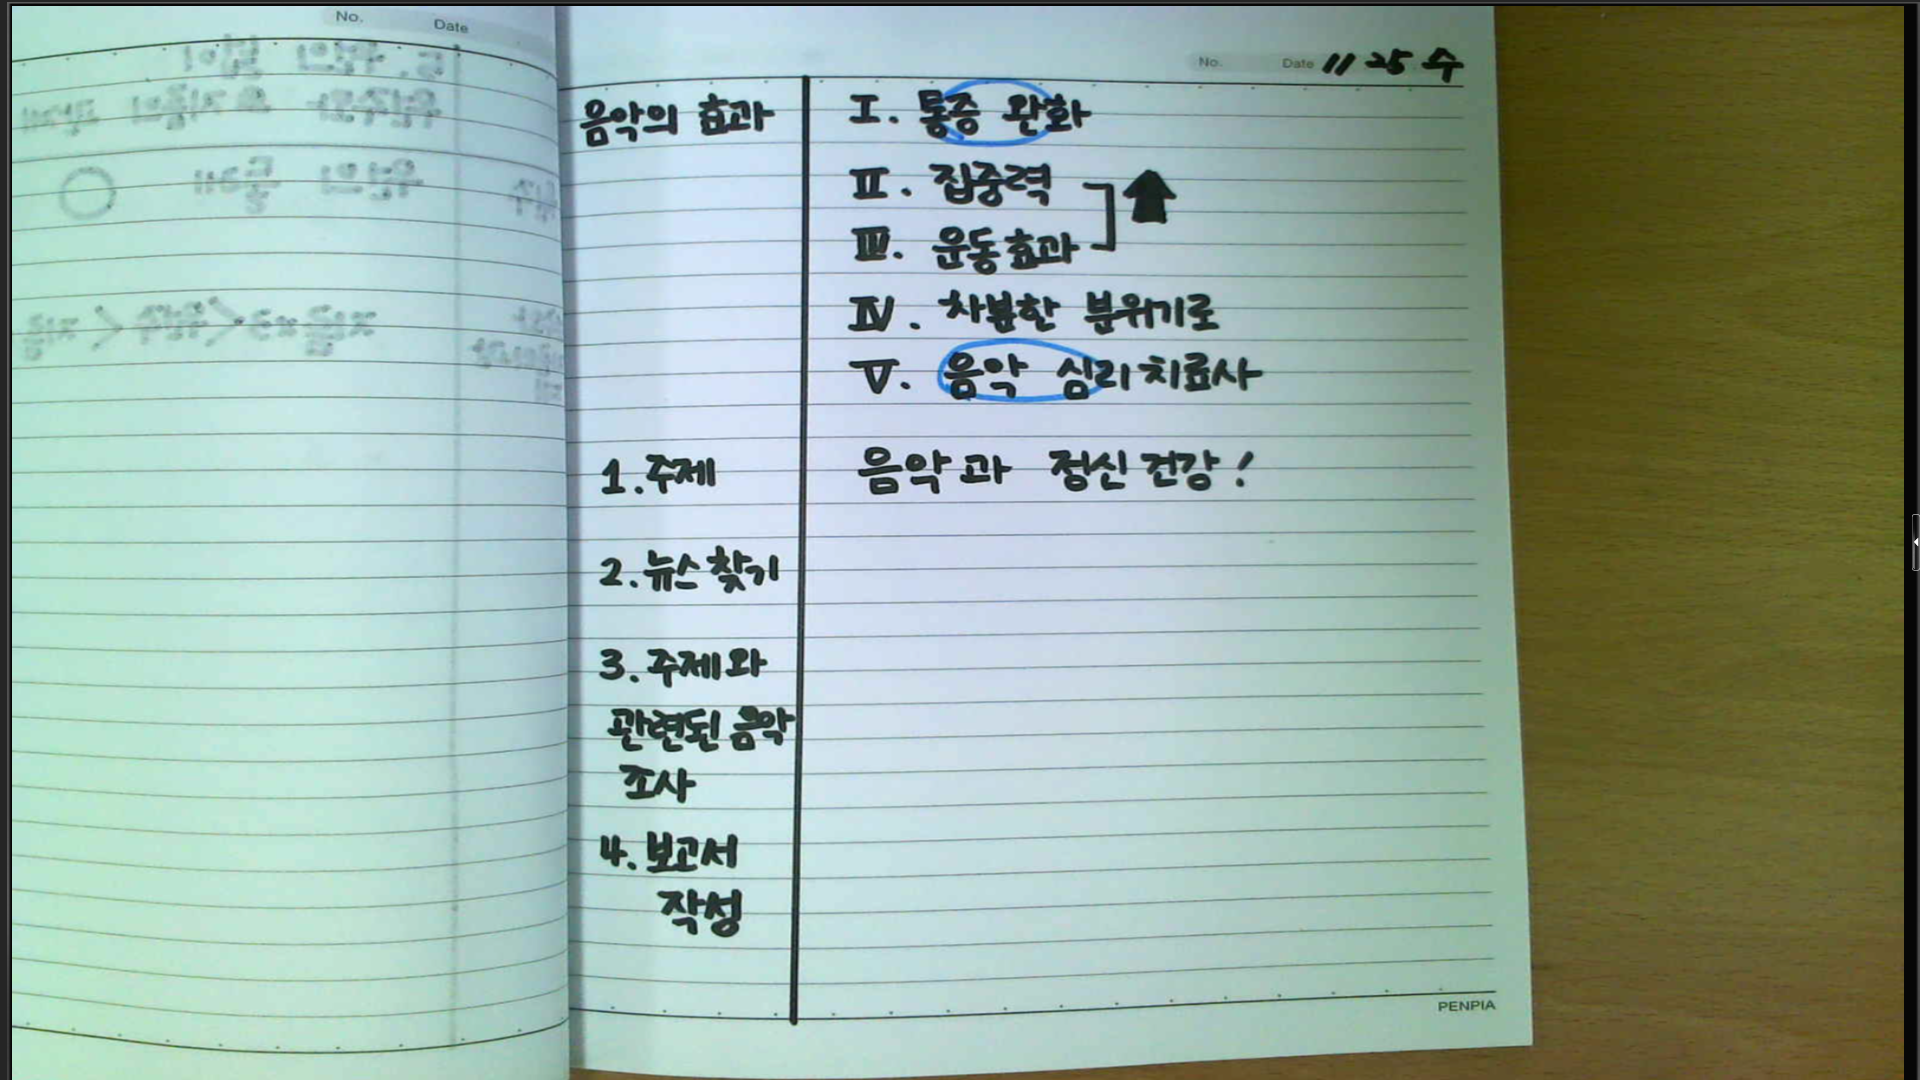 No.
Date
No.
Date 11 25 수
음악의 효과
I. 통증 완화
II. 집중력
III. 운동효과
IV. 차분한 분위기로
V. 음악 심리치료사
1. 주제
음악과 정신건강!
2. 뉴스찾기
3. 주제와
관련된 음악
조사
4. 보고서
작성
PENPIA